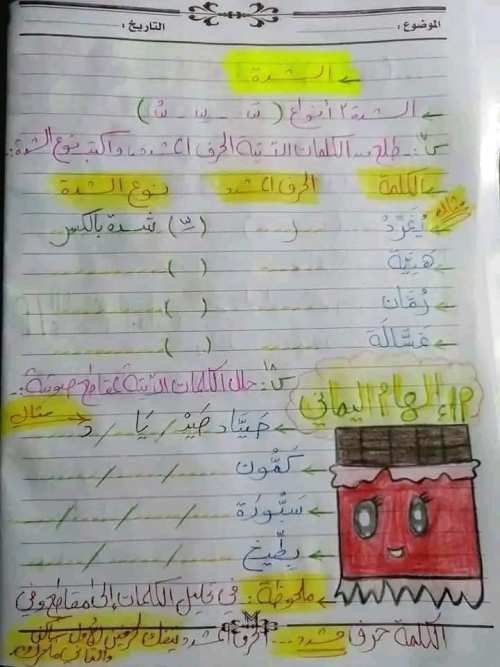 الموضوع: التاريخ:
الشدة
الشدة ٣ أنواع ( سَّ - سِّ - سُّ )
س١: طلع من الكلمات التالية الحرف المشدد، واكتب نوع الشدة:
الكلمة الحرف المشدد نوع الشدة
مثال
يُغَرِّدُ ر (ـِّ) شدة بالكسر
هَدِيَّة ( )
رُمَّان ( )
غَسَّالَة ( )
س٢: حلل الكلمات التالية لمقاطع صوتية:
م/إلهام اليماني
مثال
صَيَّاد صَيْ / يَا / د
كَمُّون / / /
سَبُّورَة / / /
بِطِّيخ / / /
ملحوظة: في تحليل الكلمات إلى مقاطع وفي
الكلمة حرف مشدد... الحرف المشدد يفك لحرفين الأول ساكن
والثاني متحرك